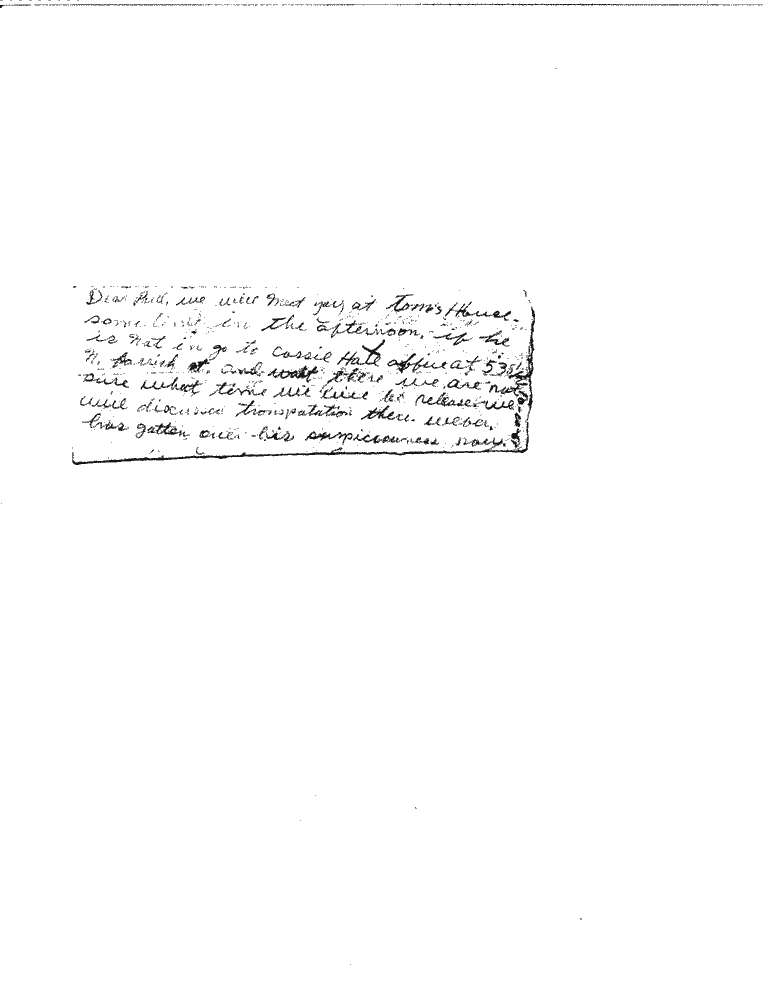 Dear Fred, we will meet you at Tom's House
sometime in the afternoon, if he
is not in go to Cassie Hale office at 53
N. Parrish st. and wait there we are not
sure what time we will be release we
will discussed transpatation there. weber.
has gotten over his suspiciousness now.